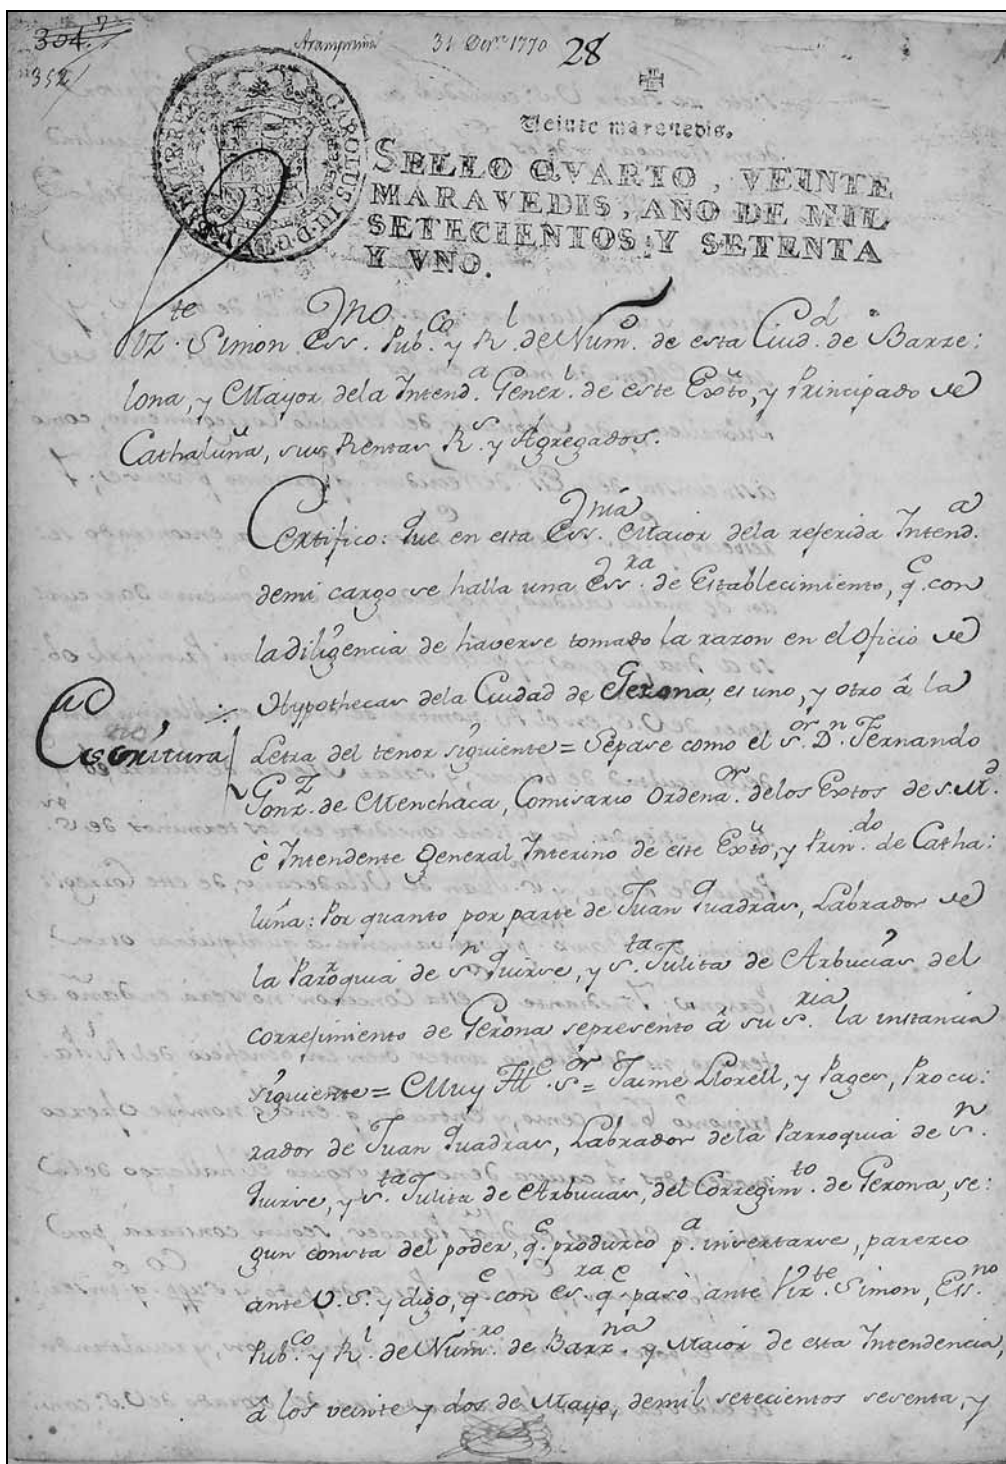 304. 7
352
Aramprunña 31 Dezre 1770 28
Veinte maravedis.
SELLO QVARTO, VEINTE
MARAVEDIS, AÑO DE MIL
SETECIENTOS, Y SETENTA
Y VNO.
CAROLUS III D. G.
Vizte. Simon Essno. Pubco. y Rl. de Numo. de esta Ciudd. de Barze:
lona, y Mayor dela Intenda. Generl. de este Exto, y Principado de
Cathaluña, sus Rentas Rs. y Agregados.
Certifico: Que en esta Essnia. Maior dela referida Intenda.
demi cargo se halla una Essra. de Establecimiento, qe. con
la diligencia de haverse tomado la razon en el Oficio de
Hypothecas dela Ciudad de Gerona, es uno, y otro â la
Escritura
Letra del tenor siguiente = Sepase como el Sor. Dn. Fernando
Gonz. de Menchaca, Comisario Ordenaor. delos Extos de S. Md.
è Intendente General Interino de este Exto, y Prindo. de Catha:
luña: Por quanto por parte de Juan Quadras, Labrador de
la Parroquia de Sn. Quirse, y Sta. Julita de Arbucias del
correjimiento de Gerona represento â su Sria. la instancia
siguiente = Muy Ille. Sor = Jaime Llorell, y Pages, Procu:
rador de Juan Quadras, Labrador de la Parroquia de Sn.
Quirse, y Sta. Julita de Arbucias, del Corregimto. de Gerona, se:
gun consta del poder, qe. produzco pa. insertarse, parezco
ante V. S. y digo, qe. con esra. qe. pasò ante Vizte. Simon, Essno.
Pubco. y Rl. de Numro. de Barna. y Maior de esta Intendencia,
â los veinte y dos de Mayo, demil setecientos sesenta, y